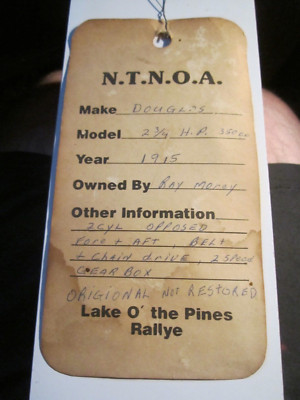 N.T.N.O.A.
Make DOUGLAS
Model 2 3/4 H.P. 2 SPEED
Year 1915
Owned By RAY
Other Information
2 CYL OPPOSED
FORE + AFT, BELT
+ CHAIN DRIVE, 2 SPEED
GEAR BOX
ORIGIONAL NOT RESTORED
Lake O' the Pines
Rallye